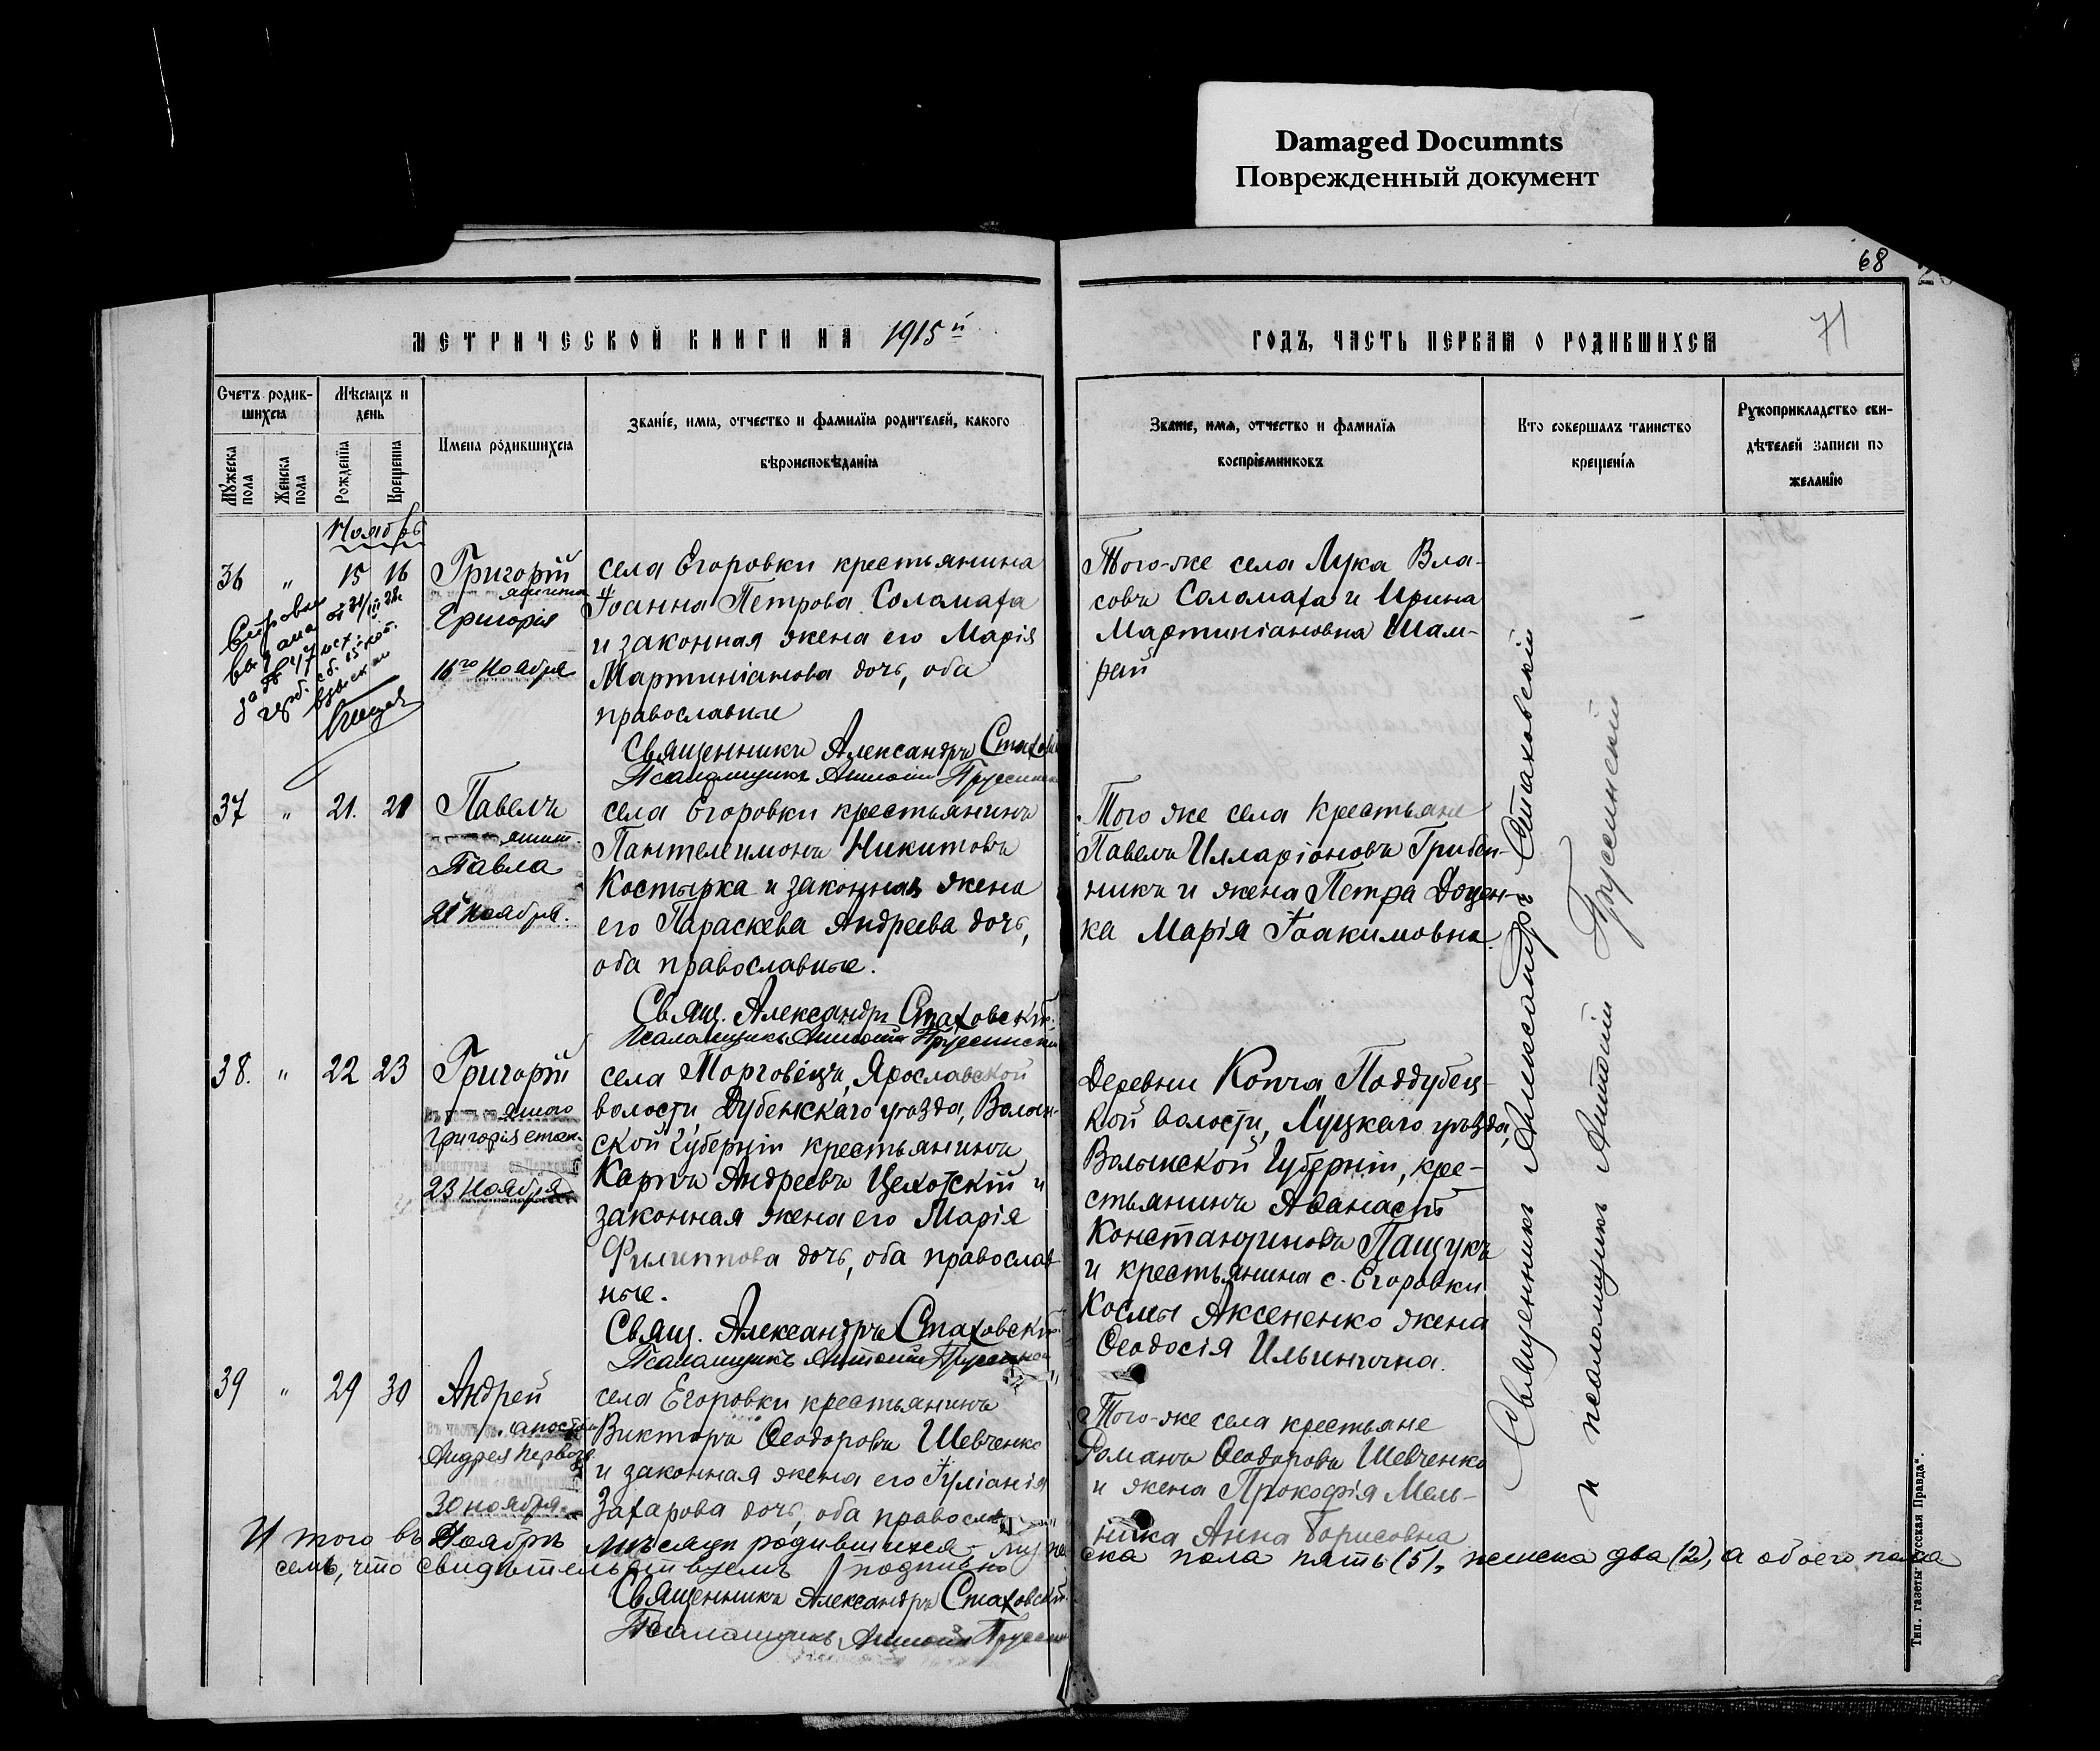 Damaged Documnts
Поврежденный документ
68
71
МЕТРИЧЕСКОЙ КНИГИ НА 1915й
ГОДЪ, ЧАСТЬ ПЕРВАЯ О РОДИВШИХСЯ
Счетъ родив-
шихся
Мужеска пола
Женска пола
Мѣсяцъ и
день
Рожденія
Крещенія
Имена родившихся
Званіе, имя, отчество и фамилія родителей, какого
вѣроисповѣданія
Званіе, имя, отчество и фамилія
воспріемниковъ
Кто совершалъ таинство
крещенія
Рукоприкладство сви-
дѣтелей записи по
желанію
Ноябрь
36 " 15 16
Григорій
Григорія
16го Ноября
села Егоровки крестьянина
Іоанна Петрова Соломаха
и законная жена его Марія
Мартиніанова дочь, оба
православные
Священникъ Александръ Стахов
Псаломщикъ Антоній Пруссинск
Того-же села Лука Вла-
совъ Соломаха и Ирина
Мартиніановна Шам-
рай
37 " 21. 21
Павелъ
Павла
21 Ноября.
села Егоровки крестьянинъ
Пантелеимонъ Никитовъ
Костырка и законная жена
его Параскева Андреева дочь,
оба православные.
Свящ. Александръ Стаховскій.
Псаломщикъ Антоній Пруссинскій
Того же села крестьяне
Павелъ Илларіоновъ Грибен-
никъ и жена Петра Доцен-
ка Марія Іоакимовна.
38. " 22 23
Григорій
Григорія епис.
23 Ноября
села Торговецъ, Ярославской
волости Дубенскаго уѣзда, Волын-
ской Губерніи крестьянинъ
Карпъ Андреевъ Цехотскій и
законная жена его Марія
Филиппова дочь, оба православ
ные.
Свящ. Александръ Стаховскій.
Псаломщикъ Антоній Пруссинск
Деревни Копча Поддубец-
кой волости, Луцкаго уѣзда,
Волынской Губерніи, кре-
стьянинъ Аѳанасій
Константиновъ Пащукъ
и крестьянина с. Егоровки
Космы Аксененко жена
Ѳеодосія Ильинична.
39 " 29 30
Андрей
апост.
Андрея Первозв.
30 ноября.
села Егоровки крестьянинъ
Викторъ Ѳеодоровъ Шевченко
и законная жена его Іуліанія
Захарова дочь, оба православ
Того-же села крестьяне
Романъ Ѳеодоровъ Шевченко
и жена Прокофія Мель-
ника Анна Борисовна
Священникъ Александръ Стаховскій
и псаломщикъ Антоній Пруссинскій
Итого въ Ноябрѣ мѣсяцѣ родившихся - муже
ска пола пять (5), женска два (2), а обоего пола
семь, что свидѣтельствуемъ подписью
Священникъ Александръ Стаховскій.
Псаломщикъ Антоній Пруссин
Тип. газеты „Русская Правда“.